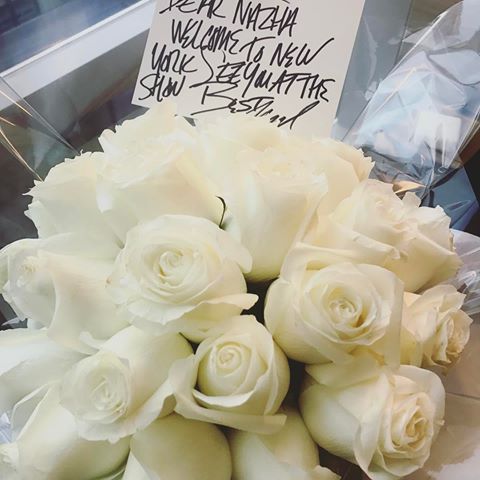 DEAR NAZHA
WELCOME TO NEW
YORK SEE YOU AT THE
SHOW